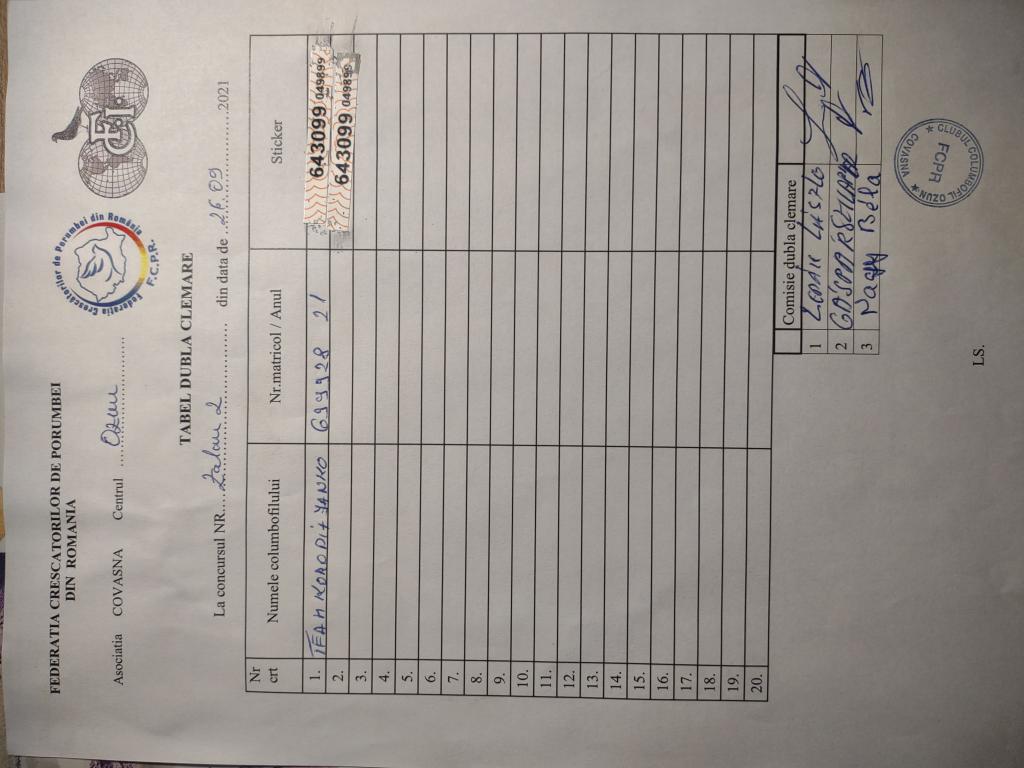 FEDERATIA CRESCATORILOR DE PORUMBEI
DIN ROMANIA
Federatia Crescatorilor de Porumbei din România
F.C.P.R.
FCI
Asociatia COVASNA Centrul ..Ozun..........
TABEL DUBLA CLEMARE
La concursul NR....Zalau 2.................. din data de ..26.09..............2021
Nr crt Numele columbofilului Nr.matricol / Anul Sticker
1. TEAM KORODI + YANKO 699928 21 643099 049899
2. 643099 049899
3.
4.
5.
6.
7.
8.
9.
10.
11.
12.
13.
14.
15.
16.
17.
18.
19.
20.
Comisie dubla clemare
1 László
2
3 Nagy Béla
LS.
CLUBUL COLUMBOFIL OZUN ★ COVASNA ★
FCPR